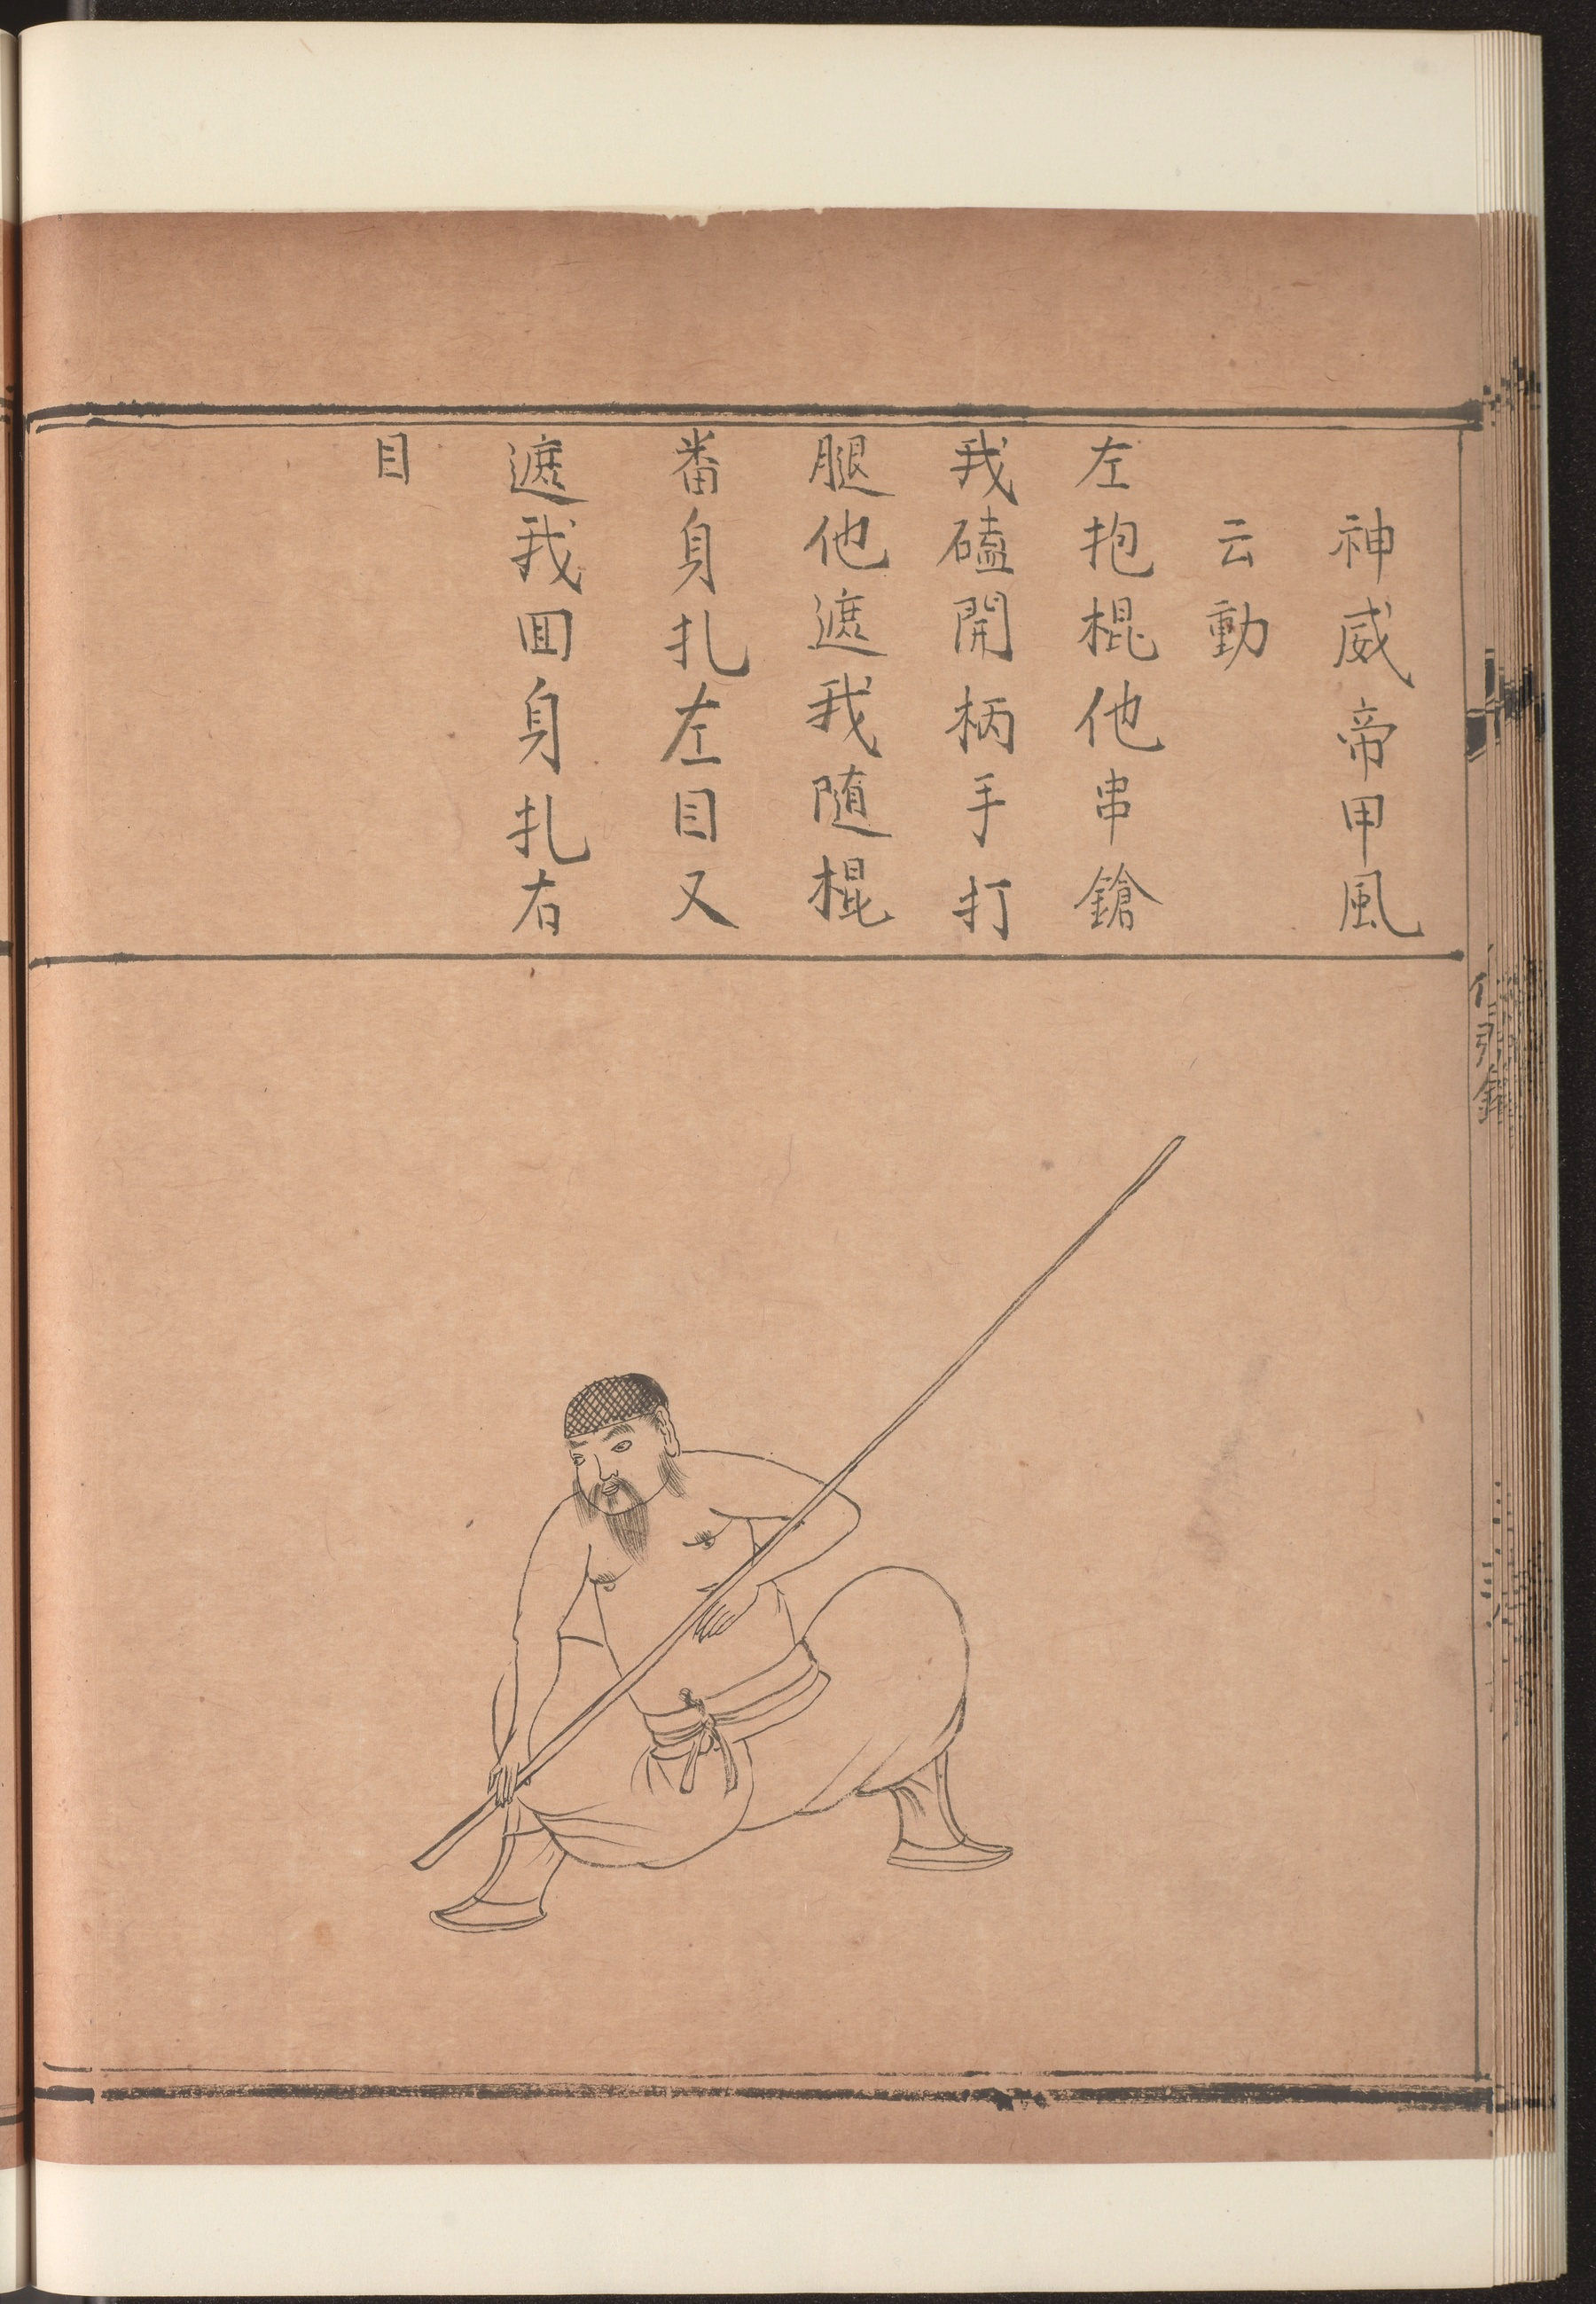 神威帝甲風
云動
左抱棍他串鎗
我磕開柄手打
腿他遮我随棍
番身扎左目又
遮我囬身扎右
目